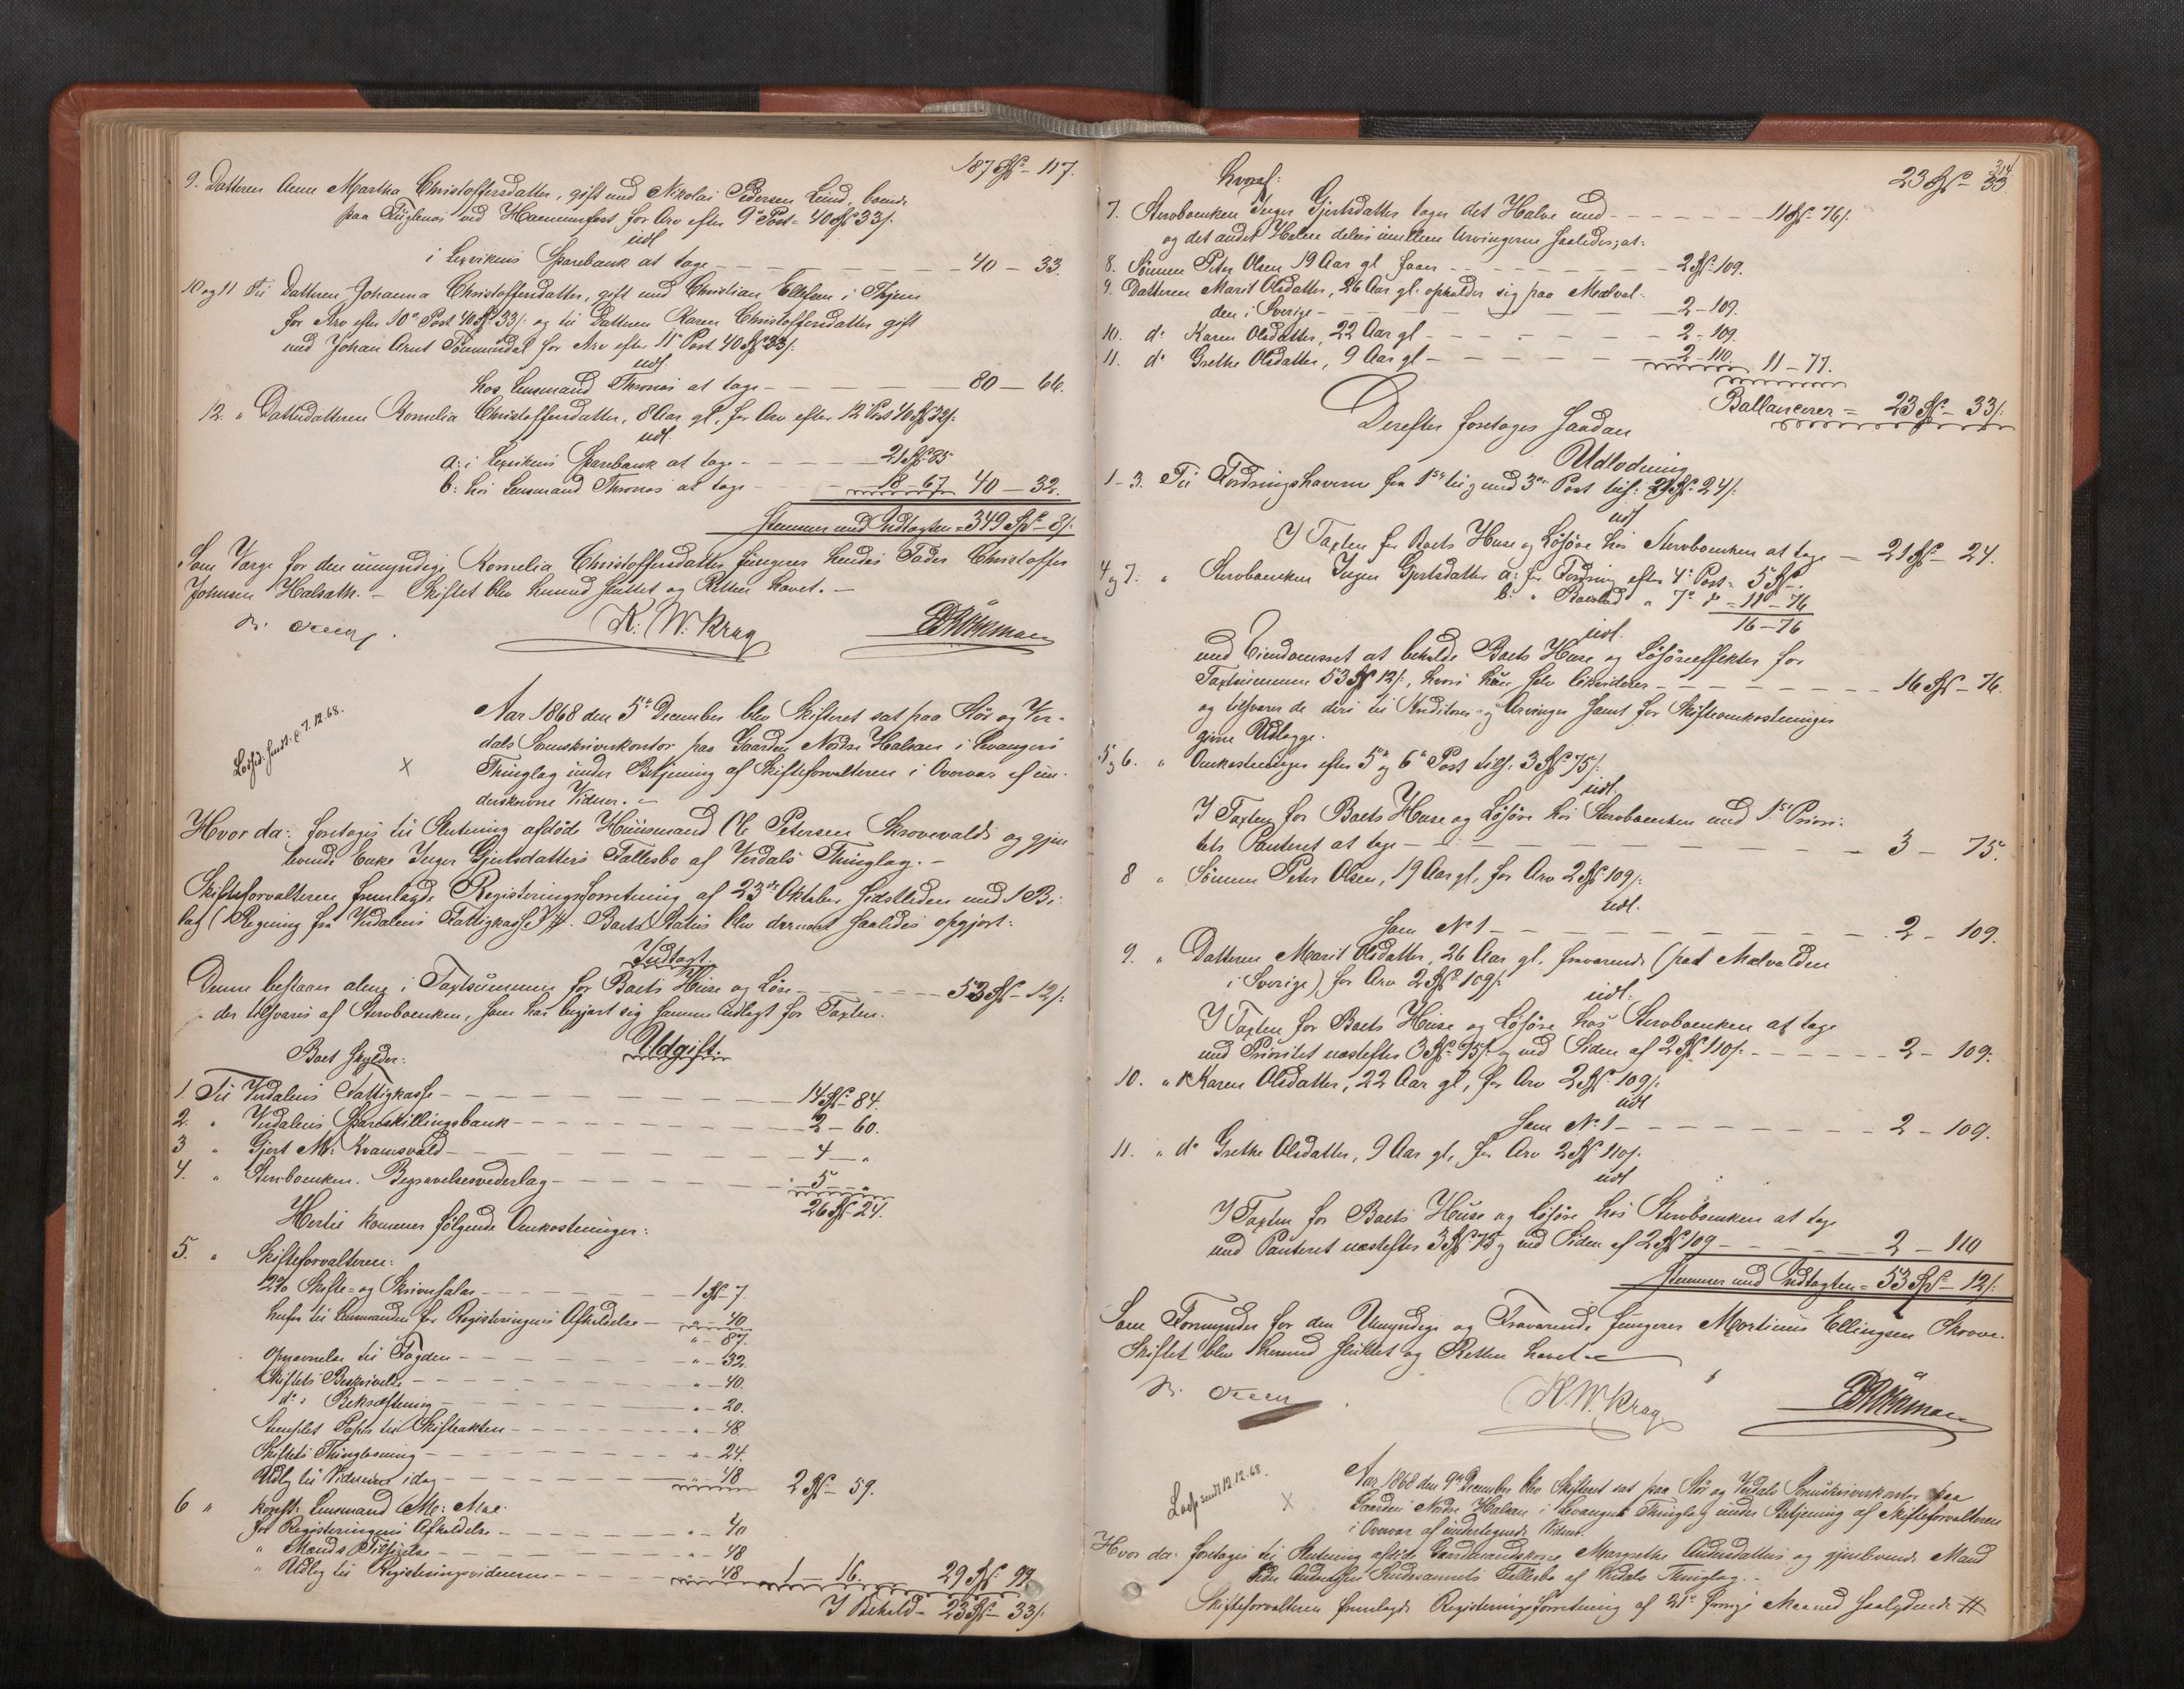 187 Spd - 117.
9. Datteren Anne Martha Christoffersdatter, gift med Nikolai Pedersen Lund, boende
paa Fuglenæs ved Hammerfest for Arv efter 9de Post - 40 Spd 33/.
udl
i Lexvikens Sparebank at tage - 40 - 33.
10 og 11 Til Datteren Johanna Christoffersdatter, gift med Christian Ellefsen i
for Arv efter 10de Post 40 Spd 33/. og til Datteren Karen Christoffersdatter gift
med Johan Arnt Tömmerdal for Arv efter 11te Post 40 Spd 33/.
udl.
hos Lensmand Thronæs at tage - 80 - 66.
12. " Datterdatteren Kornelia Christoffersdatter, 8 Aar gl. for Arv efter 12 Post 40 Spd 32/.
udl.
a: i Lexvikens Sparebank at tage - 21 Spd 85
b: hos Lensmand Thronæs at tage - 18 - 67 40 - 32.
Stemmer med Indtægten = 349 Spd - 8/.
Som Værge for den umyndige Kornelia Christoffersdatter fungerer hendes Fader Christoffer
Johnsen Halsath. - Skiftet blev hermed sluttet og Retten hævet. -
K. W. Krag
7.12.68.
Aar 1868 den 5te December blev Skifteret sat paa Stör og Ver-
dals Sorenskriverkontor paa Gaarden Nordre Halsan i Levangers
Thinglag under Betjening af Skifteforvalteren i Overvær af un-
derskrevne Vidner. -
Hvor da: foretoges til Slutning afdöde Huusmand Ole Petersen Skrovevalds og gjen
levende Enke Inger Gjertsdatters Fællesbo af Verdals Thinglag. -
Skifteforvalteren fremlagde Registreringsforretning af 23de Oktober sidstleden med 1 Bi-
lag (Regning fra Verdalens Fattigkasse) #. Boets Status blev dernæst saaledes opgjort:
Indtægt.
Denne bestaar alene i Taxtsummen for Boets Huse og Löse - 53 Spd - 12/.
der tilsvares af Sterboenken, som har begjært sig samme udlagt for Taxten.
Boet skylder: Udgift.
1. Til Verdalens Fattigkasse - 14 Spd - 84.
2. " Verdalens Spareskillingsbank - 2 - 60.
3 " Gjert M. Kvamsvald - 4 - "
4. " Sterboenken. Begravelsesvederlag - 5 - "
26 Spd - 24.
Hertil kommer fölgende Omkostninger:
5. " Skifteforvalteren:
2% Skifte- og Skriversalær - 1 Spd - 7.
herfra til Lensmanden for Registreringens Afholdelse - " - 40
" - 87.
Opnævnelse til Fogden - " - 32.
Skiftets Beskrivelse - " - 40.
do: Bekræftning - " - 20.
Stemplet Papir til Skifteakten - " - 48.
Skiftets Thinglæsning - " - 24.
Udlæg til Vidnerne idag - " - 48 2 Spd - 59.
6 " Lensmand
for Registreringens Afholdelse - " - 40
" Mænds Tilsigelse - " - 48
" Udlæg til Registreringsvidnerne - " - 48 1 - 16. 29 Spd - 99
I Behold - 23 Spd - 33/.
314
hvoraf: 23 Spd - 33
7. Sterboenken Inger Gjertsdatter tager det Halve med - 11 Spd - 76/.
og det andet Halve deles imellem Arvingerne saaledes, at:
8. Sönnen Peter Olsen 19 Aar gl faaer - 2 Spd 109.
9. Datteren Marit Olsdatter, 26 Aar gl. opholder sig paa Mælval-
den i Sverige - 2 - 109.
10. do Karen Olsdatter, 22 Aar gl - 2 - 109.
11. do Grethe Olsdatter, 9 Aar gl - 2 - 110. 11 - 77.
Ballancerer = 23 Spd - 33/.
Derefter foretoges saadan
Udlodning
1-3. Til Fordringshaverne fra 1ste til og med 3die Post tils: 21 Spd 24/.
udl
I Taxten for Boets Huse og Lösöre hos Sterboenken at tage - 21 Spd - 24.
4 og 7. " Sterboenken Inger Gjertsdatter a: for Fordring efter 4de Post - 5 Spd -
b: " Boeslod " 7de do - 11 - 76
16 - 76
udl.
med Eiendomsret at beholde Boets Huse og Lösöreeffekter for
Taxtsummen 53 Spd 12/., hvori hun selv likviderer - 16 Spd - 76.
og tilsvarer de deri til Kreditorer og Arvinger samt for Skifteomkostninger
givne Udlægge.
5 og 6. " Omkostninger efter 5te og 6te Post tils: 3 Spd 75/.
udl.
I Taxten for Boets Huse og Lösöre hos Sterboenken med 1ste Priori-
tets Panteret at tage - 3 - 75.
8 " Sönnen Peter Olsen, 19 Aar gl, for Arv 2 Spd 109/.
udl.
Som No 1 - 2 - 109.
9. " Datteren Marit Olsdatter, 26 Aar gl. fraværende (paa Mælvalden
i Sverige) for Arv 2 Spd 109/.
udl.
I Taxten for Boets Huse og Lösöre hos Sterboenken at tage
med Prioritet næstefter 3 Spd 75/. og ved Siden af 2 Spd 110/. - 2 - 109.
10. " do Karen Olsdatter, 22 Aar gl, for Arv 2 Spd 109/.
udl
Som No 1 - 2 - 109.
11. " do Grethe Olsdatter, 9 Aar gl, for Arv 2 Spd 110/.
udl
I Taxten for Boets Huse og Lösöre hos Sterboenken at tage
med Panteret næstefter 3 Spd 75 og ved Siden af 2 Spd 109 - 2 - 110
Stemmer med Indtægten = 53 Spd - 12/.
Som Formynder for den Umyndige og Fraværende fungerer Mortinus Ellingsen Skrove.
Skiftet blev hermed sluttet og Retten hævet. -
K. W. Krag
12.12.68.
Aar 1868 den 9de December blev Skifteret sat paa Stör og Verdals Sorenskriverkontor paa
Gaarden Nordre Halsan i Levangers Thinglag under Betjening af Skifteforvalteren
i Overvær af undertegnede Vidner.
Hvor da: foretoges til Slutning afdöde Gaardmandskone Margrethe Andersdatters og gjenlevende Mand
Fællesbo af Verdals Thinglag. -
Skifteforvalteren fremlagde Registreringsforretning af 21de forrige Maaned saalydende #